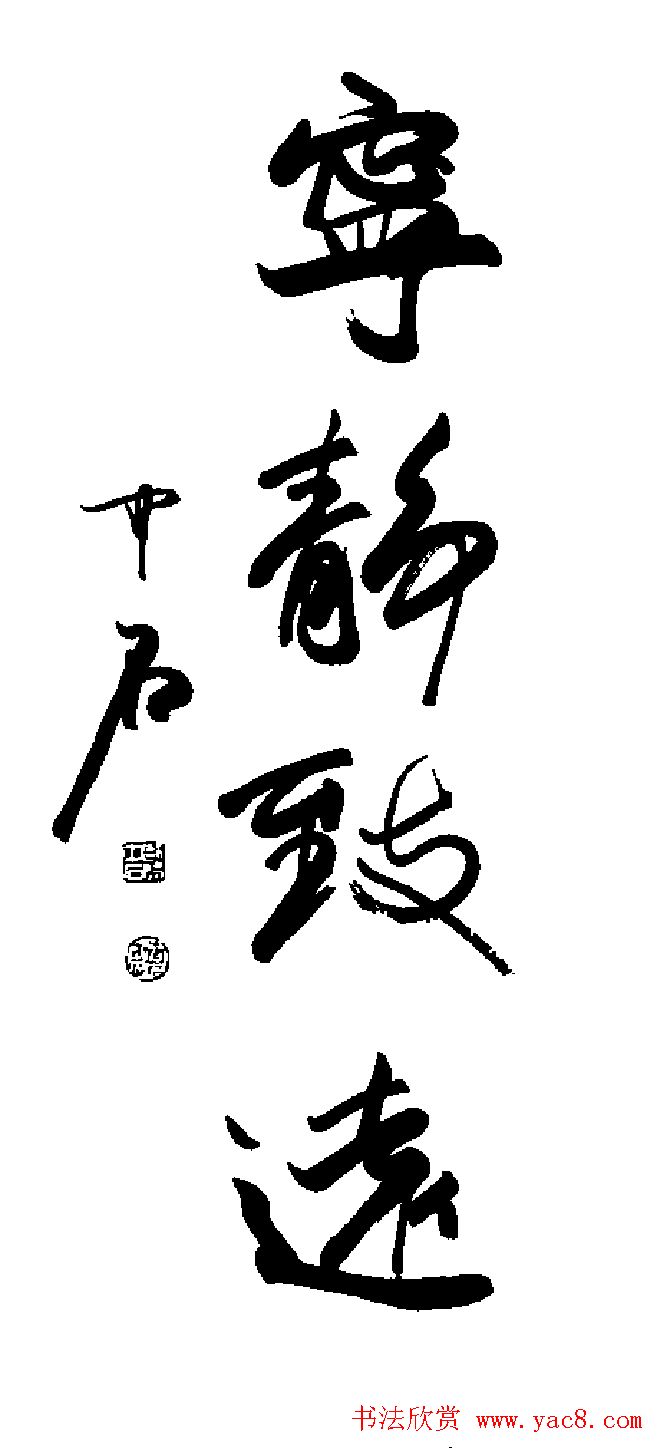 寧靜致遠
中石
书法欣赏 www.yac8.com